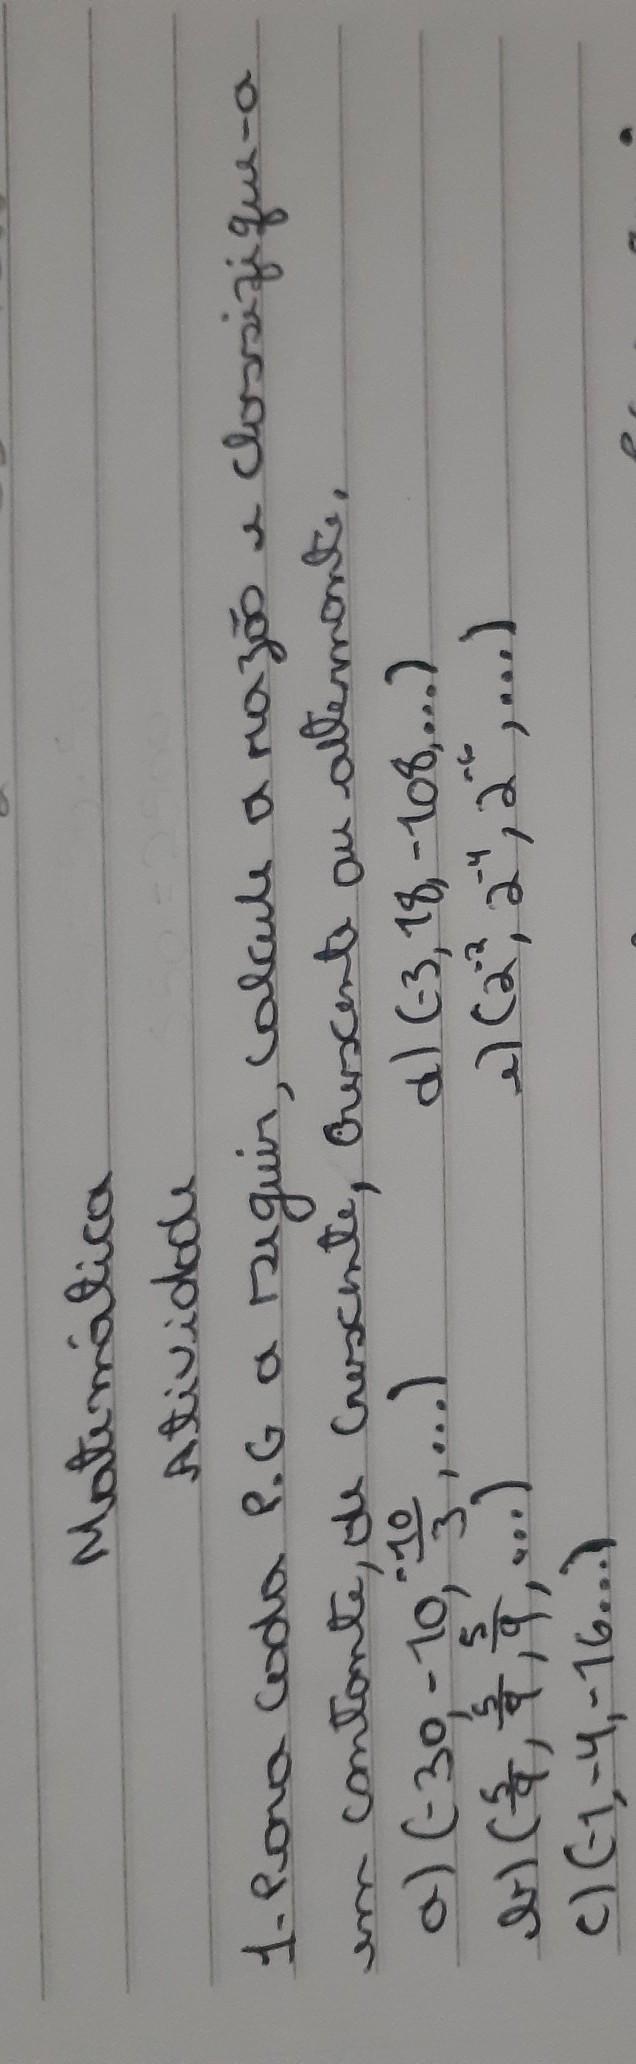 Matemática
Atividade
1- Para cada P.G a seguir, calcule a razão e classifique-a
em contante, de crescente, crescente ou alternante,
a) (-30, -10, -10/3, ...) d) (-3, 18, -108, ...)
b) (5/9, 5/9, 5/9, ...) e) (2⁻², 2⁻⁴, 2⁻⁶, ....)
c) (-1, -4, -16...)